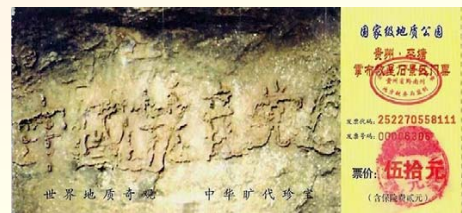 世界地质奇观 中华旷代珍宝
国家级地质公园
贵州·平塘
掌布救星石景区门票
发票代码: 252270558111
发票号码:
票价: 伍拾元
(含保险费贰元)